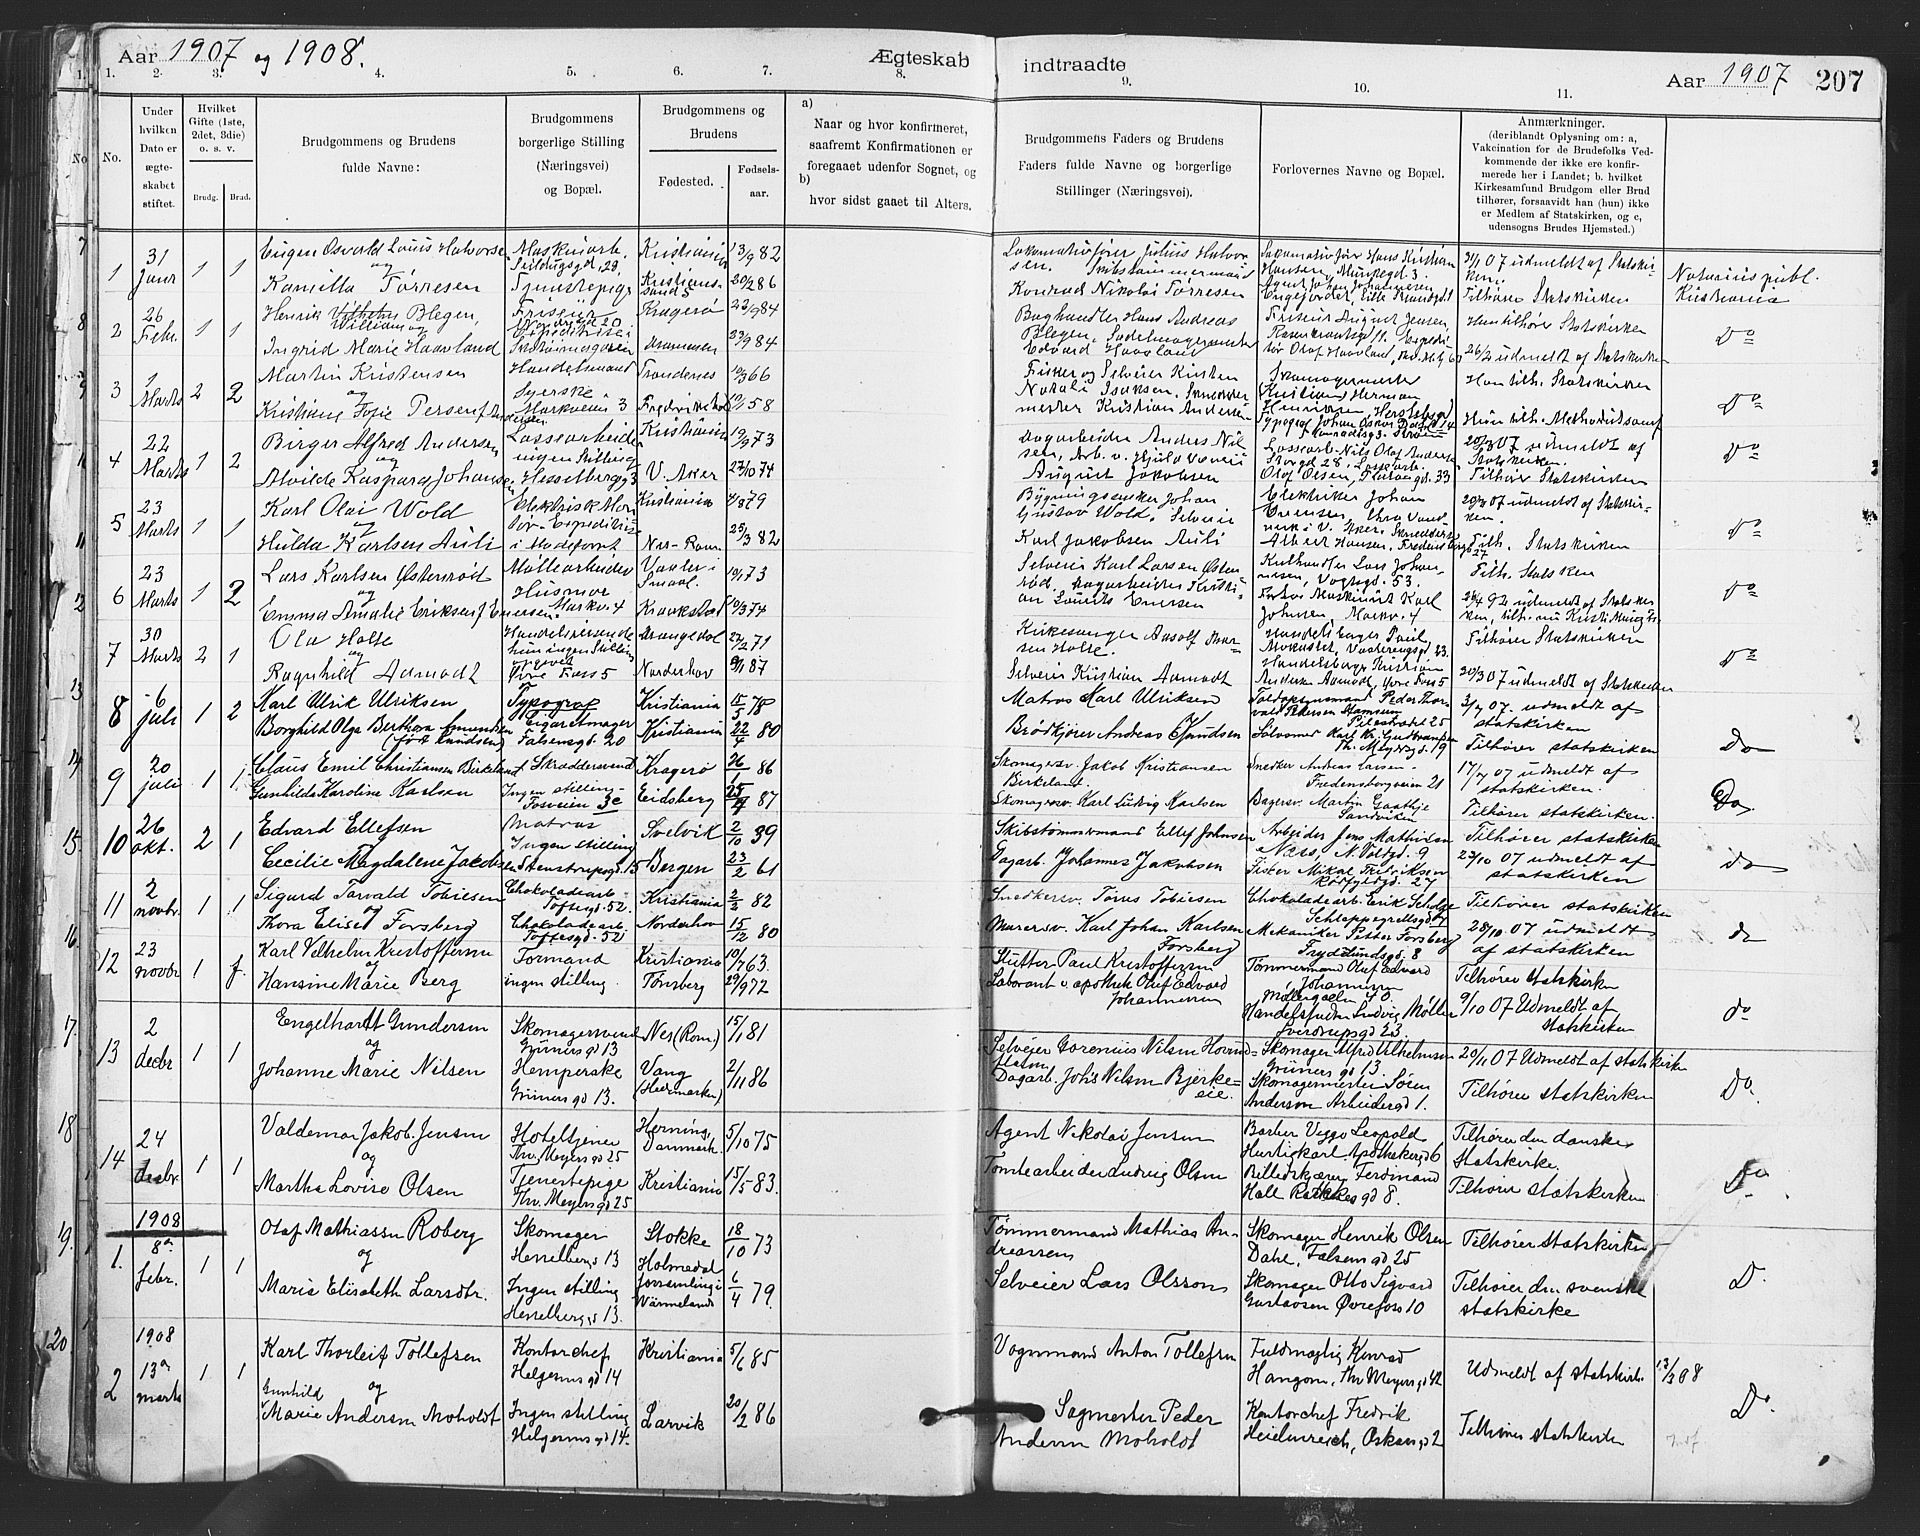 Aar 1907 og 1908. Ægteskab indtraadte Aar 1907 207
1. 2. 3. 4. 5. 6. 7. 8. 9. 10. 11.
No.
Under hvilken Dato er ægteskabet stiftet.
Hvilket Gifte (1ste, 2det, 3die) o. s. v.
Brudg. Brud.
Brudgommens og Brudens fulde Navne:
Brudgommens borgerlige Stilling (Næringsvei) og Bopæl.
Brudgommens og Brudens
Fødested. Fødsels-aar.
a) Naar og hvor konfirmeret, saafremt Konfirmationen er foregaaet udenfor Sognet, og
b) hvor sidst gaaet til Alters.
Brudgommens Faders og Brudens Faders fulde Navne og borgerlige Stillinger (Næringsvei).
Forlovernes Navne og Bopæl.
Anmærkninger. (deriblandt Oplysning om: a, Vakcination for de Brudefolks Vedkommende der ikke ere konfirmerede her i Landet; b. hvilket Kirkesamfund Brudgom eller Brud tilhører, forsaavidt han (hun) ikke er Medlem af Statskirken, og c, udensogns Brudes Hjemsted.)
1 31 Januar 1 1
Eugen Osvald Louis Halvorse
og
Kamilla Tørresen
Kristiania 13/9 82
Kristianssund S 20/2 86
Lokomotivfører Julius Halvorsen.
Konrad Nikolai Tørresen
Lokomotivfør Hans Kristian Hansen, Munkegd 3.
31/1 07 udmeldt af Statskirken.
Tilhører Statskirken
Notarius publ. Kristiania
2 26 Febr. 1 1
Henrik Vilhelm William Blegen,
og
Ingrid Marie Haavland
Frisør
Kragerø 22/9 84
Drammen 23/9 84
Boghandler Hans Andreas Blegen, Sadelmagermester Edvard Haavland
Frisør August Jensen, Rosenkrantzgd 11.
Hun tilhører Statskirken
26/2 udmeldt af Statskirken
Do
3 1 Marts 2 2
Martin Kristensen
og
Kristiane Josie Persen f. Andersen
Handelsmand
Syerske
Markveien 3
Trondenes 10/3 66
Fredrikshald 10/1 58
Fisker og Selveier Kristen Natali Isaksen, Snedkermester Kristian Andersen
Skomagermester Kristian Herman Henriksen, Herslebsgd
Han tilh. Statskirken
Hun tilh. Methodistsamf
Do
4 22 Marts 1 2
Birger Alfred Andersen
og
Alvilde Kaspara Johansen
Lossearbeider
ingen stilling
Hesselbergsgd 3
Kristiania 19/9 73
V. Aker 27/10 74
Dagarbeider Anders Nilsen,
August Jakobsen
Lossearb. Nils Olaf Andersen Storgd 28, Lossearb. Olaf Olsen,
20/3 07 udmeldt af Statskirken.
Tilhører Statskirken
Do
5 23 Marts 1 1
Karl Olai Wold
og
Hulda Karlsen Auli
Kristiania 4/8 79
Nes - Rom. 25/3 82
Bygningssnekker Johan Gustav Wold. Selveier Karl Jakobsen Auli
Elektriker Johan
Albert Hansen, Fredensborgv 27
20/3 07 udmeldt af Statskirken.
Tilh. Statskirken
Do
6 23 Marts 1 2
Lars Karlsen Østenrød
og
Emma Amalie Eriksen f. Enersen
Møllearbeider
Husmor
Markv. 4
Vaaler i Smaal. 19/1 73
Kraakstad 10/3 74
Selveier Karl Larsen Østenrød, Dagarbeider Kristian Laurits Enersen
Kulhandler Lars Johannesen, Vogtsgd. 53.
Karl Johnsen Markv. 4
Tilh. Statsken
26/4 92 udmeldt af Statskirken,
Do
7 30 Marts 2 1
Ola Holte
og
Ragnhild Aamodt
Handelsreisende
hun ingen Stilling opgivet
Øvre Foss 5
Drangedal 22/2 71
Norderhov 9/1 87
Kirkesanger Aasolf
Holte.
Selveier Kristian Aamodt
Handelsborger Kristian Andersen Aamodt, Øvre Foss 5
Tilhører Statskirken
20/3 07 udmeldt af Statskirken
Do
8 6 juli 1 2
Karl Ulrik Ulriksen
og
Borghild Olga Berthora Amundsen (født Knudsen)
Typograf
Cigaretmager
Falsensgd. 20
Kristiania 15/5 78
Kristiania 22/4 80
Matros Karl Ulriksen
Brødkjører Andreas Knudsen
Toldopsynsmand Peder Thorvald Petersen Stamsum Pilestrædet 25
Sølvsmed Karl Kr. Gulbransen Th. Meyersgd. 19
3/7 07. udmeldt af statskirken
Tilhører statskirken
Do
9 20 juli 1 1
Claus Emil Christiansen Birkeland
Gunhilda Karoline Karlsen
Skræddersvend
Ingen stilling
Fosveien 3c
Kragerø 26/1 86
Eidsberg 25/11 87
Skomagersv. Jakob Kristiansen Birkeland.
Skomagersv. Karl Ludvig Karlsen
Snedker Andreas Larsen - Fredensborgveien 21
Bagersv. Martin Gaathje Sandviken
17/7 07 udmeldt af statskirken.
Tilhører statskirken.
Do
10 26 okt. 2 1
Edvard Ellefsen
Cecilie Magdalene Jakobsen
Matros
Ingen stilling
Stenstrupsgd. 15
Svelvik 2/10 39
Bergen 23/2 61
Skibstømmermand Ellef Johnsen
Dagarb. Johannes Jakobsen
Arbeider Jens Mathisen Næss, N. Voldgd. 9
Fisker Mikal Fredriksen Rødfyldgd. 27
Tilhører statskirken
23/10 07 udmeldt af statskirken
do
11 2 novbr. 1 1
Sigurd Torvald Tobiesen
og
Thora Elise Forsberg
Chokoladearb. Toftesgd. 52.
Chokoladearb. Toftesgd. 52
Kristiania 2/3 82
Norderhov 15/12 80
Snedkersv. Tønes Tobiesen
Murersv. Karl Johan Karlsen Forsberg
Chokoladearb. Erik Schage Schleppegrellsgd 7
Mekaniker Petter Forsberg Frydenlundsgd. 8
Tilhører statskirken
28/10 07 udmeldt af statskirken
do
12 23 novbr 1 f.
Karl Velhelm Kristoffersen
og
Hansine Marie Berg
Formand
ingen stilling
Kristiania 10/7 63.
Tønsberg 29/9 72
Slutter Paul Kristoffersen
Laborant v. apothek Olaf Edvard Johannessen
Tømmermand Olaf Edvard Johannessen Møllergaden 40.
Handelsfuldm Ludvig Møller Sverdrupsgd 23.
Tilhører statskirken
9/10 07 Udmeldt af statskirken
do
13 2 decbr 1 1
Engelhardt Gundersen
og
Johanne Marie Nilsen
Skomagersvend Grünersgd 13
Hemperske Grünersgd 13.
Nes (Rom.) 15/1 81
Vang (Hedemarken) 2/11 86
Selveier Gorenius Nilsen
Dagarb. Johs Nilsen Bjerkeeie.
Skomager Alfred Ulhelmsen Grünersgd 13.
Skomagermester Søren Anderson Arbeidergd 1.
20/11 07 Udmeldt af statskirk
Tilhører statskirken
Do.
14 24 decbr. 1 1
Valdemar Jakob Jensen
og
Martha Lovise Olsen
Hoteltjener Thv. Meyersgd 25
Tjenestepige Thv. Meyersgd 25
Herning, Danmark. 5/10 75
Kristiania 15/5 83.
Agent Nikolai Jensen
Tomtearbeider Ludvig Olsen
Barber Viggo Leopold Hurtigkarl. Apothekergd 6
Billedskjærer Ferdinand Hall Rathkesgd 8.
Tilhører den danske Statskirke.
Tilhører statskirken
Do
1908
1. 8de febr. 1 1
Olaf Mathiassen Roberg
og
Marie Elisabeth Larsdtr.
Skomager Hesselbergsgd 13
Ingen stilling Hesselbergsgd 13.
Stokke 18/10 73
Holmedal forsamling i Wärmeland 6/4 79.
Tømmermand Mathias Andreassen
Selveier Lars Olsson
Skomager Henrik Olsen Dahl, Falsensgd 25
Skomager Otto Sigvard Gustavsen Øvrefoss 10
Tilhører statskirken
Tilhører den svenske statskirke
D.
1908
2 13de marts 1 1
Karl Thorleif Tollefsen
og
Gunhild Marie Andersen Moholdt
Kontorchef Helgesensgd 14
Ingen stilling Helgesensgd 14.
Kristiania 5/6 85
Larvik 20/2 86
Vognmand Anton Tollefsen
Sagmester Peder Andersen Moholdt
Fuldmægtig Konrad Hangom, Thv Meyersgd 42
Kontorchef Fredrik Heidenreich, Oskarsgd 2
Udmeldt af statskirk. 13/3 08
Tilhører statskirken
Do.